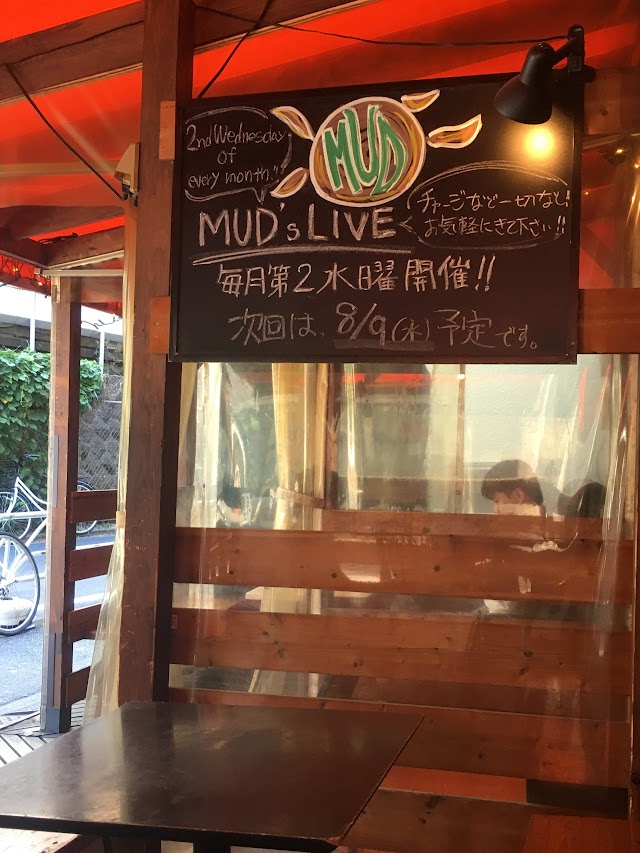 2nd Wednesday
of
every month!!
MUD
MUD'S LIVE
チャージなど一切なし!
お気軽にきて下さい!!
毎月第2水曜開催!!
次回は、8/9(水)予定です。